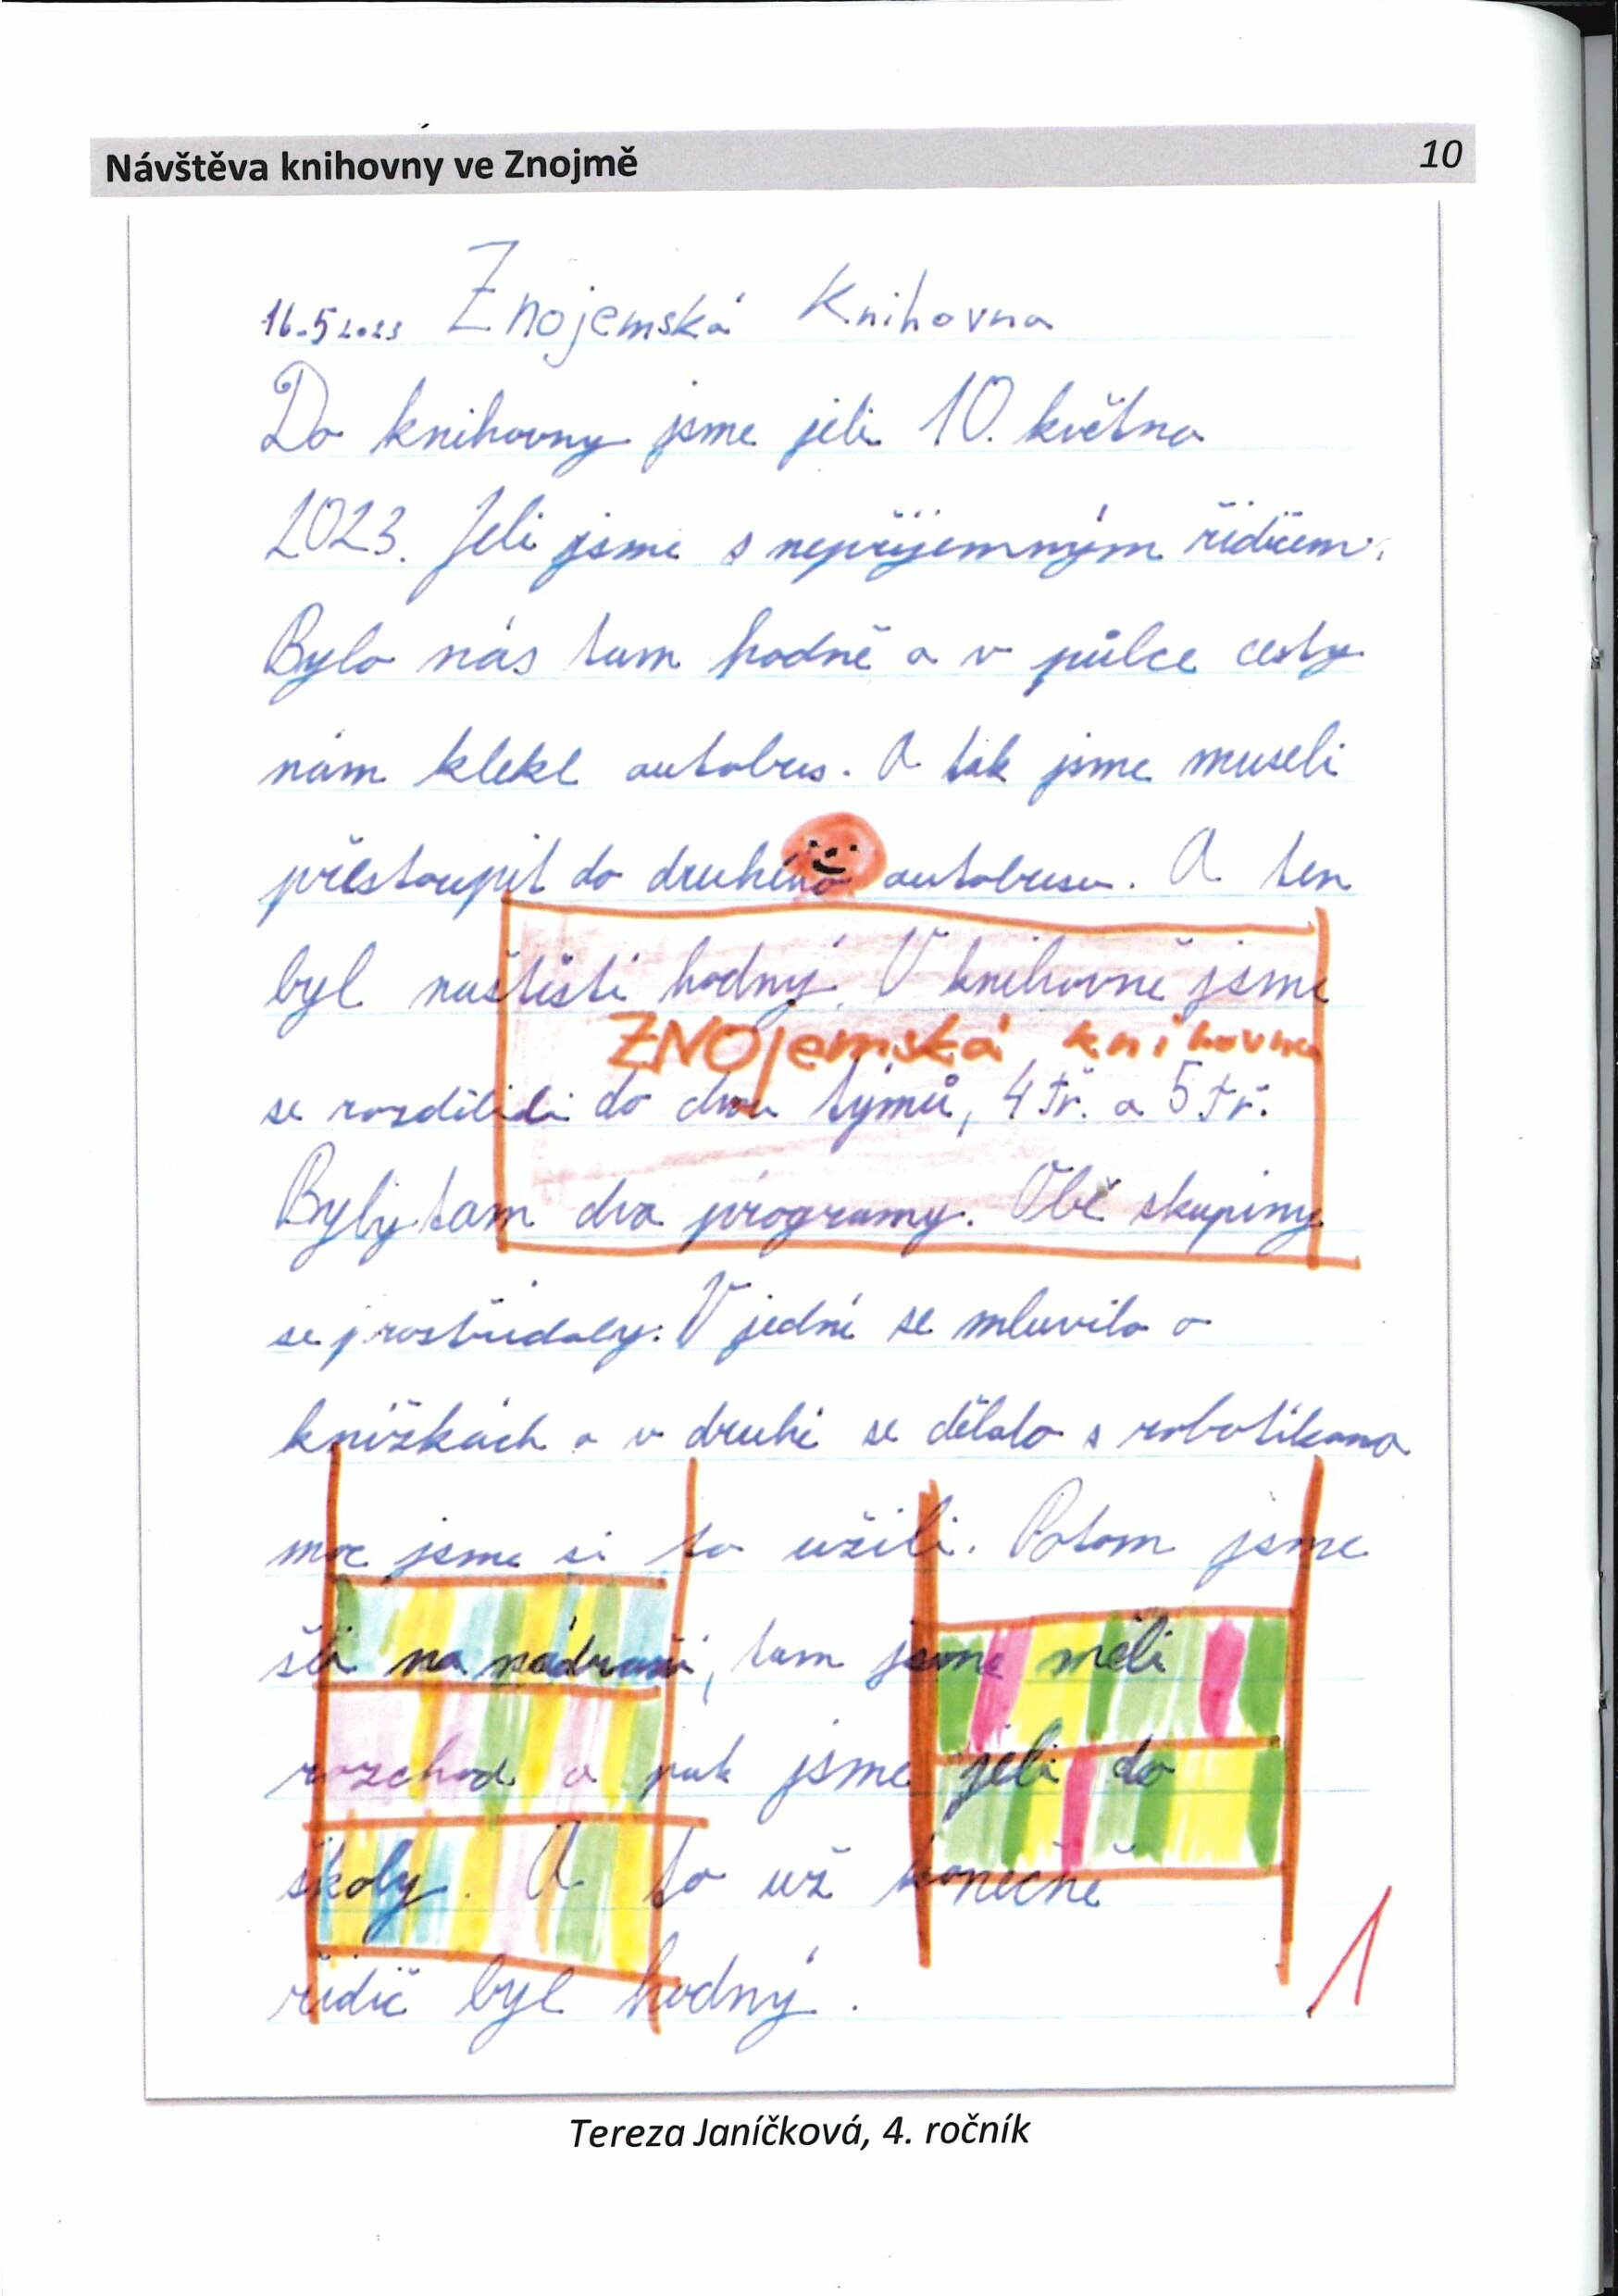 Návštěva knihovny ve Znojmě 10
16.5 2023 Znojemská Knihovna
Do knihovny jsme jeli 10. května
2023. Jeli jsme s nepříjemným řidičem.
Bylo nás tam hodně a v půlce cesty
nám klekl autobus. A tak jsme museli
přestoupit do druhého autobusu. A ten
byl naštěstí hodný. V knihovně jsme
ZNOjemská knihovna
se rozdělili do dvou týmů, 4 tř. a 5 tř.
Byly tam dva programy. Obě skupiny
se prostřídaly. V jedné se mluvilo o
knížkách a v druhé se dělalo s robotikama
moc jsme si to užili. Potom jsme
šli na nádraží, tam jsme měli
rozchod a pak jsme jeli do
školy. A to už konečně
řidič byl hodný.
1
Tereza Janíčková, 4. ročník